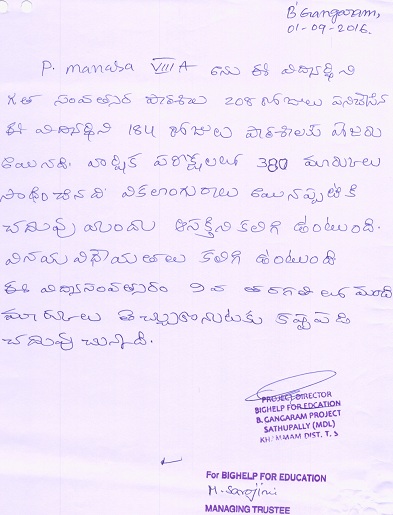 B'Gangaram,
01-09-2016.
P. manasa VIII A అను ఈ విద్యార్థిని
గత సంవత్సర పాఠశాల 208 రోజులు పనిచేసిన
ఈ విద్యార్థిని 184 రోజులు పాఠశాలకు హాజరు
అయినది. వార్షిక పరీక్షలలో 380 మార్కులు
సాధించినది వికలాంగురాలు అయినప్పటికీ
చదువు యందు ఆసక్తిని కలిగి ఉంటుంది.
వినయ విధేయతలు కలిగి ఉంటుంది
ఈ విద్యాసంవత్సరం 9వ తరగతి లో మంచి
మార్కులు తెచ్చుకొనుటకు కష్టపడి
చదువు చున్నాది.
PROJECT DIRECTOR
BIGHELP FOR EDCATION
B. GANGARAM PROJECT
SATHUPALLY (MDL)
KHAMMAM DIST. T. S
For BIGHELP FOR EDUCATION
M. Sarojini
MANAGING TRUSTEE